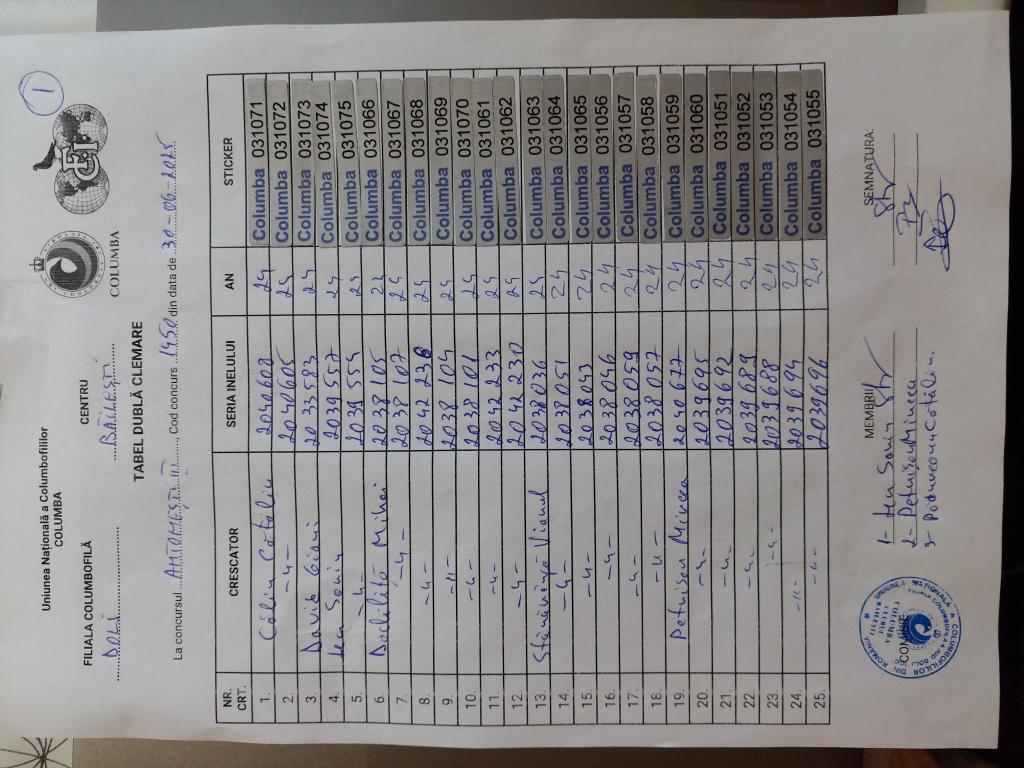 1
Uniunea Națională a Columbofililor
COLUMBA
COLUMBA
FCI
FILIALA COLUMBOFILĂ CENTRU
DOLJ BĂILEȘTI
TABEL DUBLĂ CLEMARE
La concursul ANTOMEȘTI III, Cod concurs 1450 din data de 30-06-2025
NR. CRT. CRESCATOR SERIA INELULUI AN STICKER
1. Călin Cătălin 2040608 24 Columba 031071
2. -"- 2040605 24 Columba 031072
3. David Giani 2033583 24 Columba 031073
4. Sorin 2039557 24 Columba 031074
5. -"- 2039554 24 Columba 031075
6. Mihai 2038105 22 Columba 031066
7. -"- 2038107 24 Columba 031067
8. -"- 24 Columba 031068
9. -"- 2038104 24 Columba 031069
10. -"- 2038101 24 Columba 031070
11. -"- 2042233 24 Columba 031061
12. -"- 2042230 24 Columba 031062
13. 2038036 24 Columba 031063
14. -"- 2038051 24 Columba 031064
15. -"- 2038043 24 Columba 031065
16. -"- 2038046 24 Columba 031056
17. -"- 2038059 24 Columba 031057
18. -"- 2038057 24 Columba 031058
19. Petrișor Mircea 2040677 24 Columba 031059
20. -"- 2039695 24 Columba 031060
21. -"- 2039692 24 Columba 031051
22. -"- 2039689 24 Columba 031052
23. -"- 2039688 24 Columba 031053
24. -"- 2039694 24 Columba 031054
25. -"- 2039696 24 Columba 031055
MEMBRII/ SEMNATURA:
1- Sorin
2- Petrișor Mircea
3- Cătălin